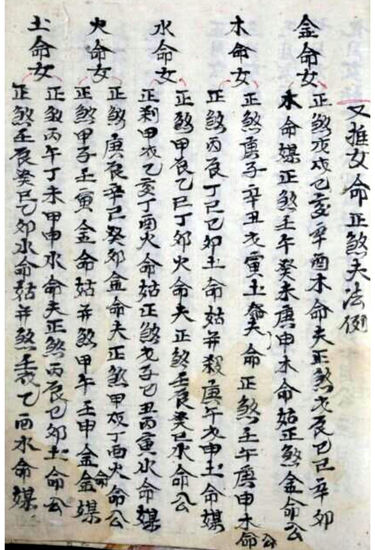 又推女命正煞夫法例
金命女
正煞戊戌己亥辛酉木命夫正煞戊辰己巳辛卯
木命媒正煞壬午癸未庚申木命姑正煞金命公
木命女
正煞庚子辛丑戊寅土命夫正煞壬午庚申木命公
正煞丙辰丁巳己卯土命姑并殺庚午戊申土命媒
水命女
正煞甲辰乙巳丁卯火命夫正煞壬辰癸巳水命公
正剎甲戌乙亥丁酉火命姑正煞戊子己丑丙寅水命媒
火命女
正煞庚辰辛巳癸卯金命夫正煞甲戌丁酉火命公
正煞甲子壬寅金命姑并煞甲午壬申金命媒
土命女
正煞丙午丁未甲申水命夫正煞丙辰己卯土命公
正煞壬辰癸巳乙卯水命姑并煞壬戌乙酉水命媒